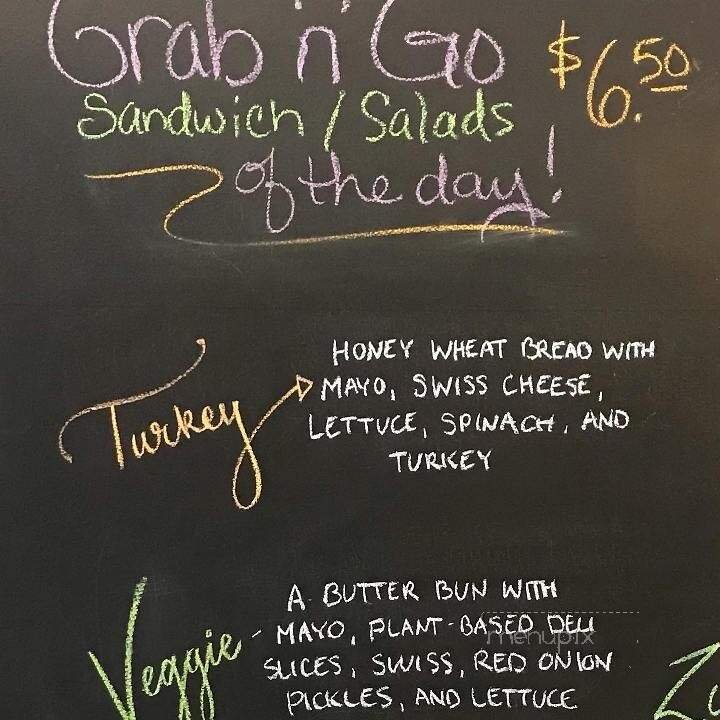 Grab 'n' Go $6.50
Sandwich / Salads
of the day!
Turkey
HONEY WHEAT BREAD WITH
MAYO, SWISS CHEESE,
LETTUCE, SPINACH, AND
TURKEY
Veggie -
A BUTTER BUN WITH
MAYO, PLANT-BASED DELI
SLICES, SWISS, RED ONION
PICKLES, AND LETTUCE
menupix